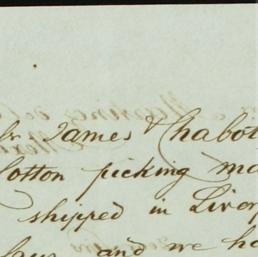 James & Chabot
Cotton picking ma
shipped in Liver
and we ha